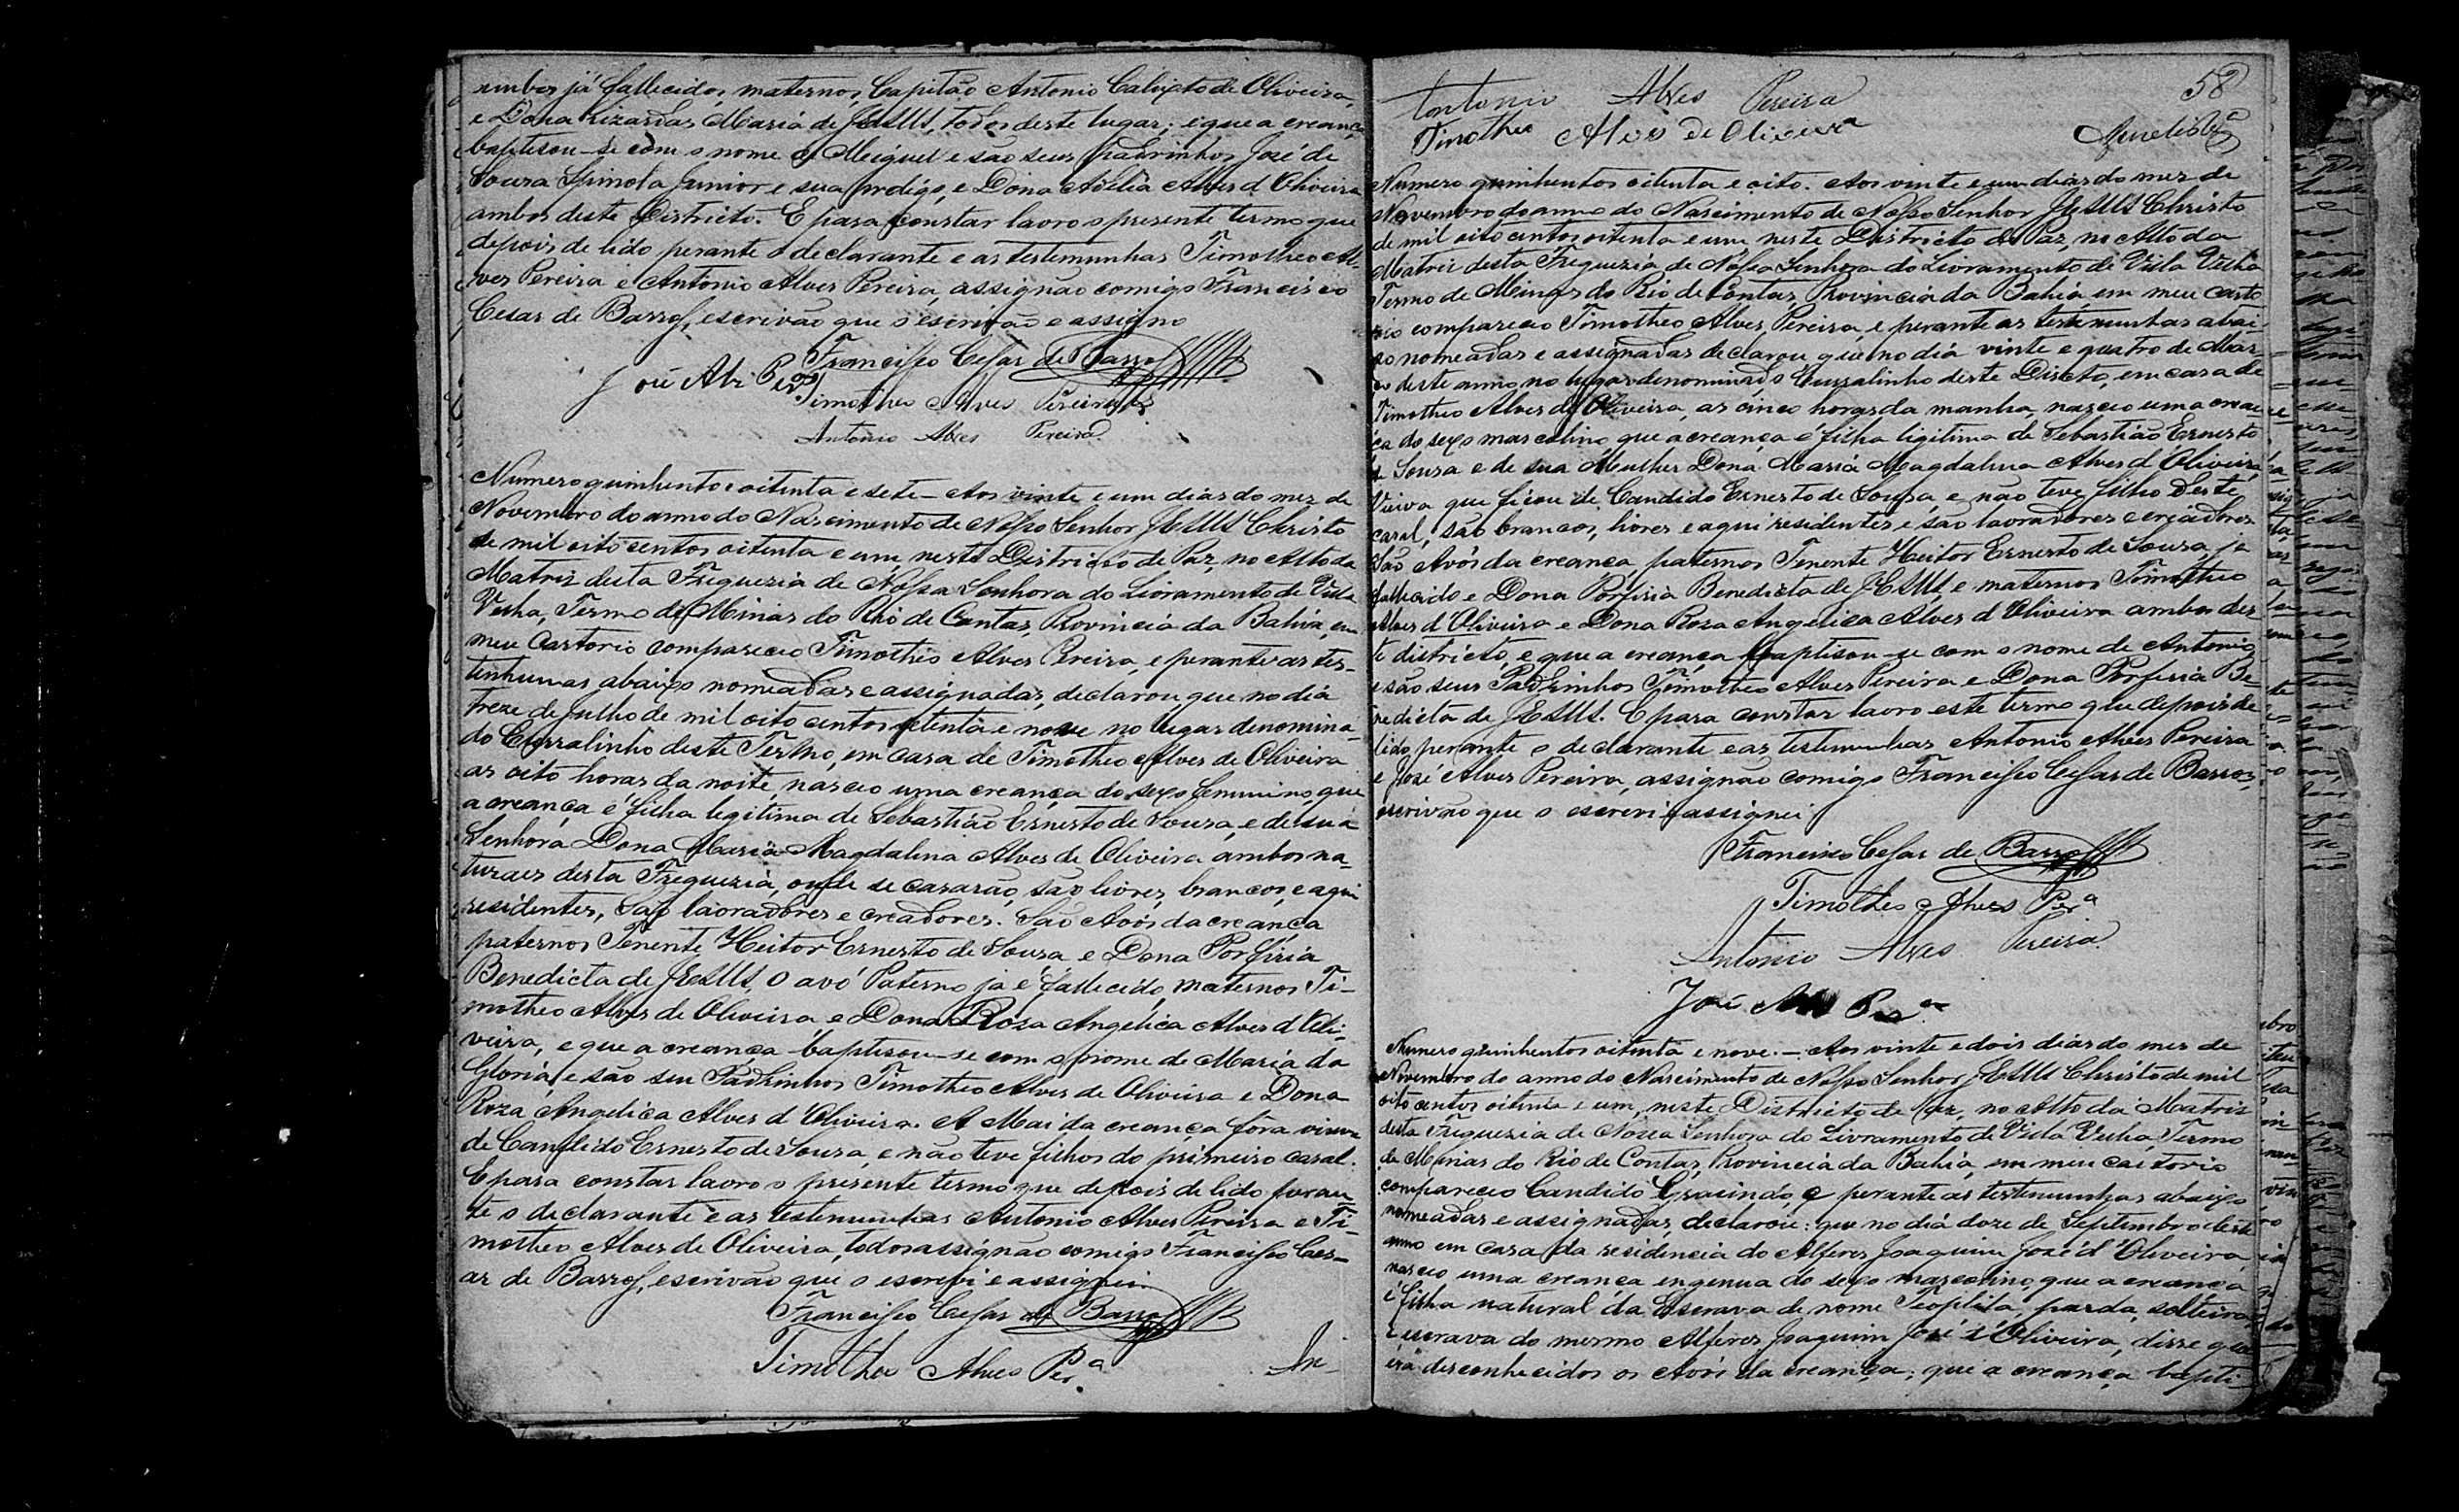 ambos já fallecidos, maternos, Capitão Antonio Calixto de Oliveira,
e Dona Lizarda Maria de JESUS, todos deste lugar; e que a creança
baptisou-se com o nome de Meiguel e são seus Padrinhos José de
Souza Spinola Junior e sua e Dona Avelia Alves d'Oliveira
ambos deste Districto. E para constar lavro o presente termo que
depois de lido perante o declarante e as testemunhas Timotheo Al-
ves Pereira e Antonio Alves Pereira, assignão comigo Francisco
Cesar de Barros, escrivão que o e assigno
Francisco Cesar de Barros
José
Timotheo Alves Pereira
Antonio Alves Pereira
Numero quinhentos oitenta e sete - Aos vinte e um dias do mez de
Novembro do anno do Nascimento de Nosso Senhor JESUS Christo
de mil oito centos oitenta e um, neste Districto de Paz, no Alto da
Matriz desta Freguezia de Nossa Senhora do Livramento de Villa
Velha, Termo de Minas do Rio de Contas, Provincia da Bahia, em
meu Cartorio compareceo Timotheo Alves Pereira, e perante as tes-
tenhumas abaixo nomeadas e assignadas, declarou que no dia
treze de Julho de mil oito centos setenta e nove no lugar denomina-
do Curralinho deste Termo, em casa de Timotheo Alves de Oliveira
as oito horas da noite, nasceo uma creança do sexo femenino, que
a creança é filha legitima de Sebastião Ernesto de Souza, e de sua
Senhora Dona Maria Magdalena Alves de Oliveira ambos na-
turaes desta Freguezia, onde se casarão, são livres, brancos, e aqui
residentes, são lavradores e creadores. São Avós da creança
paternos Tenente Heitor Ernesto de Souza e Dona Porfiria
Benedicta de JESUS, o avô Paterno ja é fallecido, maternos Ti-
motheo Alves de Oliveira e Dona Roza Angelica Alves d'Oli-
veira, e que a creança baptisou-se com o nome de Maria da
Gloria, e são seu Padrinhos Timotheo Alves de Oliveira e Dona
Roza Angelica Alves d'Oliveira. A Mai da creança fora viuva
de Candido Ernesto de Souza, e não teve filhos do primeiro casal.
E para constar lavro o presente termo que depois de lido peran-
te o declarante e as testemunhas Antonio Alves Pereira e Ti-
motheo Alves de Oliveira, todos assignão comigo Francisco Cez-
ar de Barros, escrivão que o escrevi e assignei
Francisco Cesar de Barros
Timotheo Alves Per.a
An-
58
Antonio Alves Pereira
Timotheo Alves de Oliveira
Numero quinhentos oitenta e oito. Aos vinte e um dias do mez de
Novembro do anno do Nascimento de Nosso Senhor JESUS Christo
de mil oito centos oitenta e um neste Districto de Paz, no Alto da
Matriz desta Freguezia de Nossa Senhora do Livramento de Villa Velha
Termo de Minas do Rio de Contas, Provincia da Bahia em meu carto-
rio compareceo Timotheo Alves Pereira, e perante as testemunhas abai-
xo nomeadas e assignadas declarou que no dia vinte e quatro de Mar-
ço deste anno, no lugar denominado Curralinho deste Discto, em casa de
Timotheo Alves de Oliveira, as cinco horas da manha, nasceo uma crean-
ça do sexo mascolino, que a creança é filha ligitima de Sebastião Ernesto
de Sousa e de sua Mulher Dona Maria Magdalena Alves d'Oliveira,
Viuva que ficou de Candido Ernesto de Sousa, e não teve filho deste
casal, são brancos, livres e aqui residentes e são lavradores e creadores
São Avós da creança paternos Tenente Heitor Ernesto de Sousa, ja
fallecido e Dona Porfiria Benedicta de JESUS, e maternos Timotheo
Alves d'Oliveira e Dona Roza Angelica Alves d'Oliveira ambos des-
te districto, e que a creança baptisou-se com o nome de Antonio
e são seus Padrinhos Timotheo Alves Pereira e Dona Porfiria Be-
nedicta de JESUS. E para constar lavro este termo que depois de
lido perante o declarante e as testemunhas Antonio Alves Pereira
e José Alves Pereira, assignão comigo Francisco Cesar de Barros,
escrivão que o escrevi e assignei
Francisco Cesar de Barros
Timotheo Alves Per.a
Antonio Alves Pereira
José Per.a
Numero quinhentos oitenta e nove. - Aos vinte e dois dias do mez de
Novembro do anno do Nascimento de Nosso Senhor JESUS Christo de mil
oito centos oitenta e um, neste Districto de Paz, no Alto da Matriz
desta Freguezia de Nossa Senhora do Livramento de Villa Velha, Termo
de Minas do Rio de Contas, Provincia da Bahia, em meu cartorio
compareceo Candido Gracindo, e perante as testemunhas abaixo
nomeadas e assignadas, declarou: que no dia doze de Septembro deste
anno em casa da residencia do Alferes Joaquim José d'Oliveira,
nasceo uma creança engenua do sexo mascolino, que a creança
é filha natural da Escrava de nome Teophila, parda, solteira
e escrava do mesmo Alferes Joaquim José d'Oliveira, disse que
erá desconhecidos os Avós da creança; que a creança bapti-